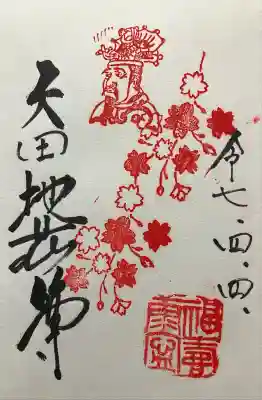 令七.四.四.
矢田地蔵尊